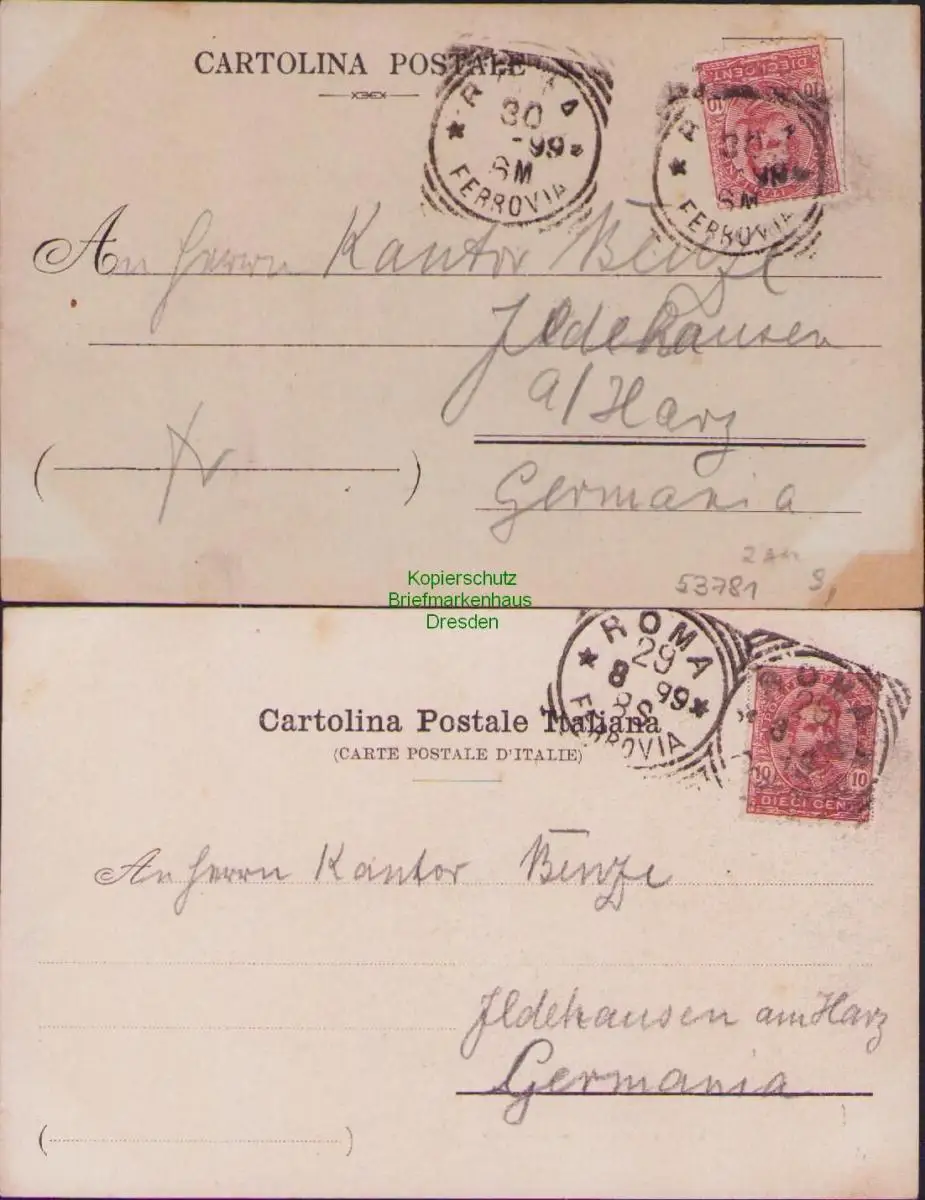 CARTOLINA POSTALE
30
-99
8M
FERROVIA
DIECI CENT.
10 10
8M
FERROVIA
An Herrn Kantor Benze
Ildehausen
a/Harz
Germania
53781
Kopierschutz
Briefmarkenhaus
Dresden
ROMA
29
8 99
8S
FERROVIA
ROMA
Cartolina Postale Italiana
(CARTE POSTALE D'ITALIE)
10 10
DIECI CENT
An Herrn Kantor Benze
Ildehausen am Harz
Germania